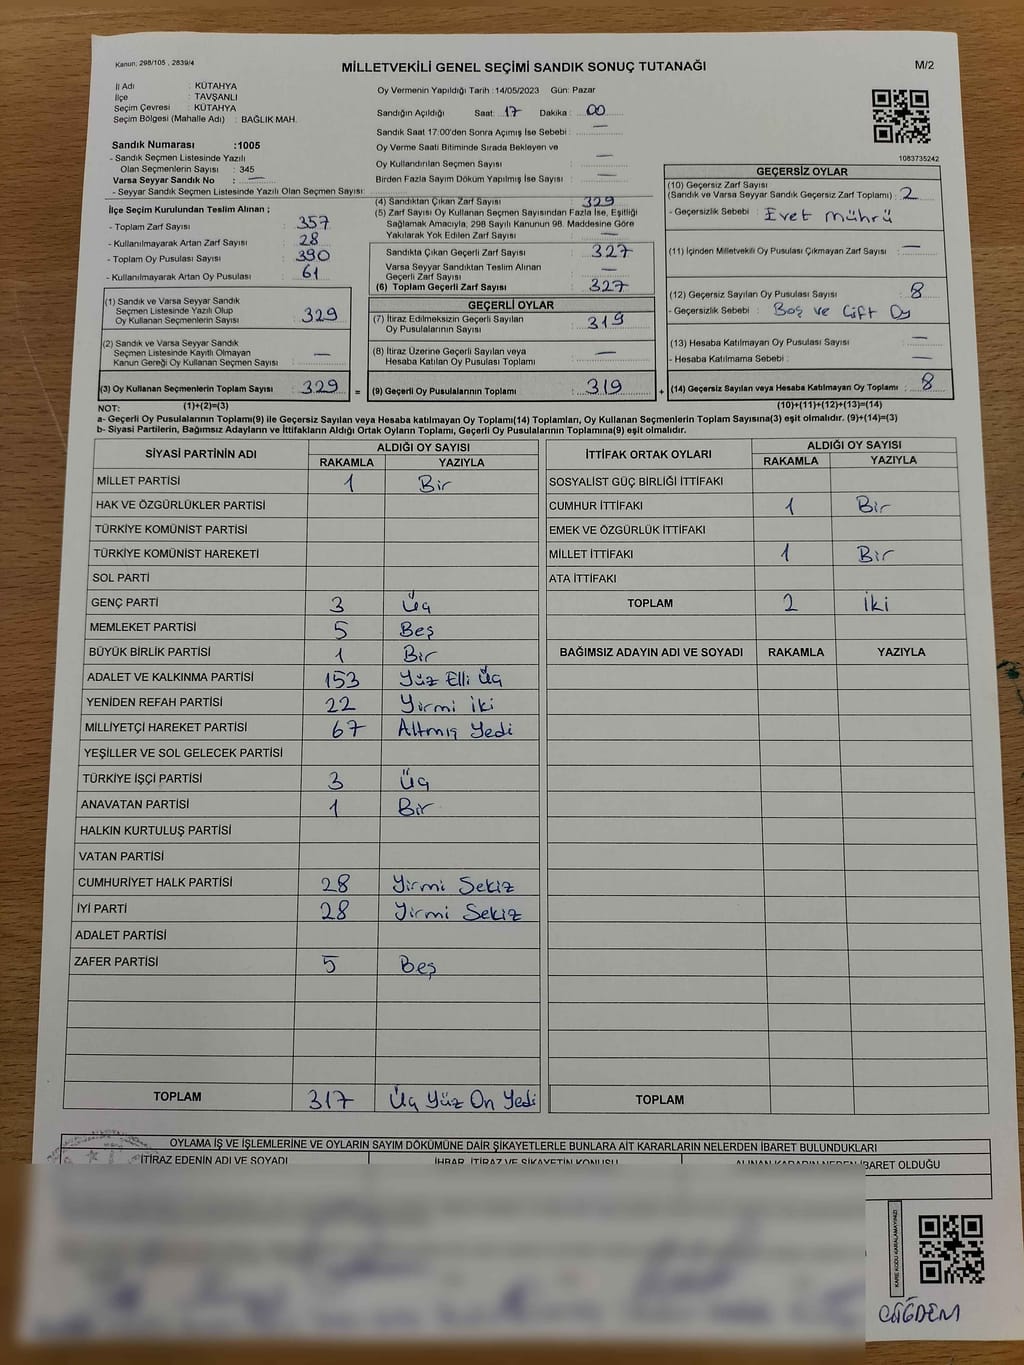 Kanun; 298/105 , 2839/4
MİLLETVEKİLİ GENEL SEÇİMİ SANDIK SONUÇ TUTANAĞI
M/2
İl Adı : KÜTAHYA
İlçe : TAVŞANLI
Seçim Çevresi : KÜTAHYA
Seçim Bölgesi (Mahalle Adı) : BAĞLIK MAH.
Oy Vermenin Yapıldığı Tarih :14/05/2023 Gün: Pazar
Sandığın Açıldığı Saat: 17 Dakika : 00
Sandık Saat 17:00'den Sonra Açımış İse Sebebi : —
Oy Verme Saati Bitiminde Sırada Bekleyen ve
Oy Kullandırılan Seçmen Sayısı : —
Birden Fazla Sayım Döküm Yapılmış İse Sayısı : —
1083735242
Sandık Numarası :1005
- Sandık Seçmen Listesinde Yazılı
Olan Seçmenlerin Sayısı : 345
Varsa Seyyar Sandık No : —
- Seyyar Sandık Seçmen Listesinde Yazılı Olan Seçmen Sayısı:
İlçe Seçim Kurulundan Teslim Alınan ;
- Toplam Zarf Sayısı : 357
- Kullanılmayarak Artan Zarf Sayısı : 28
- Toplam Oy Pusulası Sayısı : 390
- Kullanılmayarak Artan Oy Pusulası : 61
(1) Sandık ve Varsa Seyyar Sandık
Seçmen Listesinde Yazılı Olup
Oy Kullanan Seçmenlerin Sayısı : 329
(2) Sandık ve Varsa Seyyar Sandık
Seçmen Listesinde Kayıtlı Olmayan
Kanun Gereği Oy Kullanan Seçmen Sayısı : —
(3) Oy Kullanan Seçmenlerin Toplam Sayısı : 329 =
(4) Sandıktan Çıkan Zarf Sayısı : 329
(5) Zarf Sayısı Oy Kullanan Seçmen Sayısından Fazla İse, Eşitliği
Sağlamak Amacıyla, 298 Sayılı Kanunun 98. Maddesine Göre
Yakılarak Yok Edilen Zarf Sayısı : —
Sandıkta Çıkan Geçerli Zarf Sayısı : 327
Varsa Seyyar Sandıktan Teslim Alınan
Geçerli Zarf Sayısı : —
(6) Toplam Geçerli Zarf Sayısı : 327
GEÇERLİ OYLAR
(7) İtiraz Edilmeksizin Geçerli Sayılan
Oy Pusulalarının Sayısı : 319
(8) İtiraz Üzerine Geçerli Sayılan veya
Hesaba Katılan Oy Pusulası Toplamı : —
(9) Geçerli Oy Pusulalarının Toplamı : 319 +
GEÇERSİZ OYLAR
(10) Geçersiz Zarf Sayısı
(Sandık ve Varsa Seyyar Sandık Geçersiz Zarf Toplamı) : 2
- Geçersizlik Sebebi : Evet mührü
(11) İçinden Milletvekili Oy Pusulası Çıkmayan Zarf Sayısı : —
(12) Geçersiz Sayılan Oy Pusulası Sayısı : 8
- Geçersizlik Sebebi : Boş ve Çift Oy
(13) Hesaba Katılmayan Oy Pusulası Sayısı : —
- Hesaba Katılmama Sebebi : —
(14) Geçersiz Sayılan veya Hesaba Katılmayan Oy Toplamı : 8
NOT: (1)+(2)=(3)
(10)+(11)+(12)+(13)=(14)
a- Geçerli Oy Pusulalarının Toplamı(9) ile Geçersiz Sayılan veya Hesaba katılmayan Oy Toplamı(14) Toplamları, Oy Kullanan Seçmenlerin Toplam Sayısına(3) eşit olmalıdır. (9)+(14)=(3)
b- Siyasi Partilerin, Bağımsız Adayların ve İttifakların Aldığı Ortak Oyların Toplamı, Geçerli Oy Pusulalarının Toplamına(9) eşit olmalıdır.
SİYASİ PARTİNİN ADI ALDIĞI OY SAYISI
RAKAMLA YAZIYLA
MİLLET PARTİSİ 1 Bir
HAK VE ÖZGÜRLÜKLER PARTİSİ
TÜRKİYE KOMÜNİST PARTİSİ
TÜRKİYE KOMÜNİST HAREKETİ
SOL PARTİ
GENÇ PARTİ 3 Üç
MEMLEKET PARTİSİ 5 Beş
BÜYÜK BİRLİK PARTİSİ 1 Bir
ADALET VE KALKINMA PARTİSİ 153 Yüz Elli Üç
YENİDEN REFAH PARTİSİ 22 Yirmi İki
MİLLİYETÇİ HAREKET PARTİSİ 67 Altmış Yedi
YEŞİLLER VE SOL GELECEK PARTİSİ
TÜRKİYE İŞÇİ PARTİSİ 3 Üç
ANAVATAN PARTİSİ 1 Bir
HALKIN KURTULUŞ PARTİSİ
VATAN PARTİSİ
CUMHURİYET HALK PARTİSİ 28 Yirmi Sekiz
İYİ PARTİ 28 Yirmi Sekiz
ADALET PARTİSİ
ZAFER PARTİSİ 5 Beş
TOPLAM 317 Üç Yüz On Yedi
İTTİFAK ORTAK OYLARI ALDIĞI OY SAYISI
RAKAMLA YAZIYLA
SOSYALİST GÜÇ BİRLİĞİ İTTİFAKI
CUMHUR İTTİFAKI 1 Bir
EMEK VE ÖZGÜRLÜK İTTİFAKI
MİLLET İTTİFAKI 1 Bir
ATA İTTİFAKI
TOPLAM 2 İki
BAĞIMSIZ ADAYIN ADI VE SOYADI RAKAMLA YAZIYLA
TOPLAM
OYLAMA İŞ VE İŞLEMLERİNE VE OYLARIN SAYIM DÖKÜMÜNE DAİR ŞİKAYETLERLE BUNLARA AİT KARARLARIN NELERDEN İBARET BULUNDUKLARI
İTİRAZ EDENİN ADI VE SOYADI İHBAR, İTİRAZ VE ŞİKAYETİN KONUSU ALINAN KARARIN NEDEN İBARET OLDUĞU
KARE KODU KARALAMAYINIZ!
ÇİĞDEM